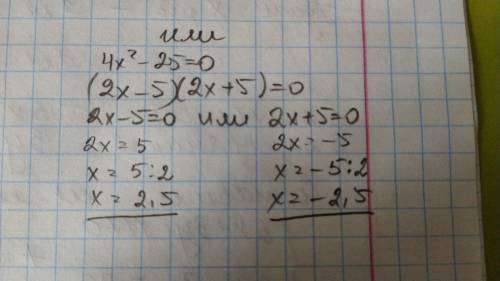 или
4x² - 25 = 0
(2x - 5)(2x + 5) = 0
2x - 5 = 0 или 2x + 5 = 0
2x = 5 2x = -5
x = 5 : 2 x = -5 : 2
x = 2,5 x = -2,5